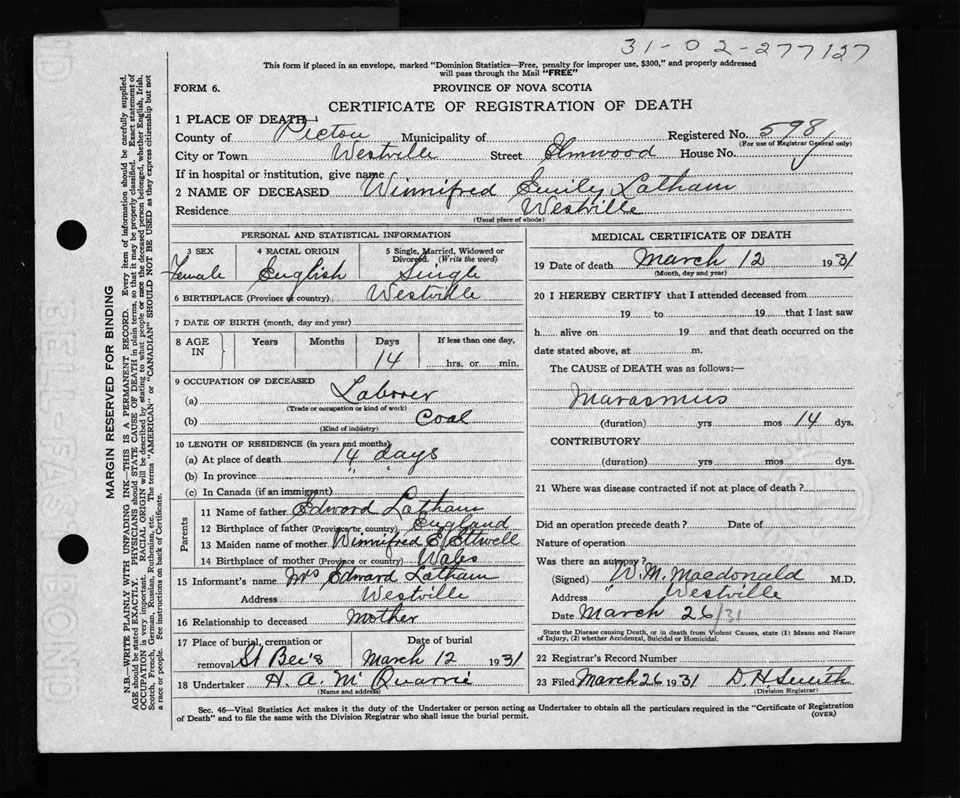 31-02-277127
This form if placed in an envelope, marked "Dominion Statistics—Free, penalty for improper use, $300," and properly addressed
will pass through the Mail "FREE"
FORM 6. PROVINCE OF NOVA SCOTIA
CERTIFICATE OF REGISTRATION OF DEATH
1 PLACE OF DEATH—
County of Pictou Municipality of Registered No. 598
(For use of Registrar General only)
City or Town Westville Street Elmwood House No.
If in hospital or institution, give name
2 NAME OF DECEASED Winnifred Emily Latham
Residence Westville
(Usual place of abode)
PERSONAL AND STATISTICAL INFORMATION
3 SEX 4 RACIAL ORIGIN 5 Single, Married, Widowed or
Divorced. (Write the word)
Female English Single
6 BIRTHPLACE (Province or country) Westville
7 DATE OF BIRTH (month, day and year)
8 AGE IN Years Months Days If less than one day,
14 hrs. or min.
9 OCCUPATION OF DECEASED
(a) Laborer
(Trade or occupation or kind of work)
(b) Coal
(Kind of industry)
10 LENGTH OF RESIDENCE (in years and months)
(a) At place of death 14 days
(b) In province " "
(c) In Canada (if an immigrant)
Parents
11 Name of father Edward Latham
12 Birthplace of father (Province or country) England
13 Maiden name of mother Winnifred E. Ettwell
14 Birthplace of mother (Province or country) Wales
15 Informant's name Mrs Edward Latham
Address Westville
16 Relationship to deceased Mother
17 Place of burial, cremation or Date of burial
removal St Bee's March 12 1931
18 Undertaker H. A. McQuarrie
(Name and address)
MEDICAL CERTIFICATE OF DEATH
19 Date of death March 12 1931
(Month, day and year)
20 I HEREBY CERTIFY that I attended deceased from
19 to 19 that I last saw
h alive on 19 and that death occurred on the
date stated above, at m.
The CAUSE of DEATH was as follows:—
Marasmus
(duration) yrs mos 14 dys.
CONTRIBUTORY
(duration) yrs mos dys.
21 Where was disease contracted if not at place of death?
Did an operation precede death? Date of
Nature of operation
Was there an autopsy?
(Signed) W. M. Macdonald M.D.
Address " Westville
Date March 26/31
State the Disease causing Death, or in death from Violent Causes, state (1) Means and Nature
of Injury, (2) whether Accidental, Suicidal or Homicidal.
22 Registrar's Record Number
23 Filed March 26 1931 D. H. Smith
(Division Registrar)
Sec. 46—Vital Statistics Act makes it the duty of the Undertaker or person acting as Undertaker to obtain all the particulars required in the "Certificate of Registration
of Death" and to file the same with the Division Registrar who shall issue the burial permit. (OVER)
MARGIN RESERVED FOR BINDING
N.B.—WRITE PLAINLY WITH UNFADING INK—THIS IS A PERMANENT RECORD. Every item of information should be carefully supplied.
AGE should be stated EXACTLY. PHYSICIANS should STATE CAUSE OF DEATH in plain terms, so that it may be properly classified. Exact statement of
OCCUPATION is very important. RACIAL ORIGIN will be described by stating to what people or race the deceased person belonged, whether English, Irish,
Scotch, French, German, Russian, Ruthenian, etc. The terms "AMERICAN" or "CANADIAN" SHOULD NOT BE USED as they express citizenship but not
a race or people. See instructions on back of Certificate.